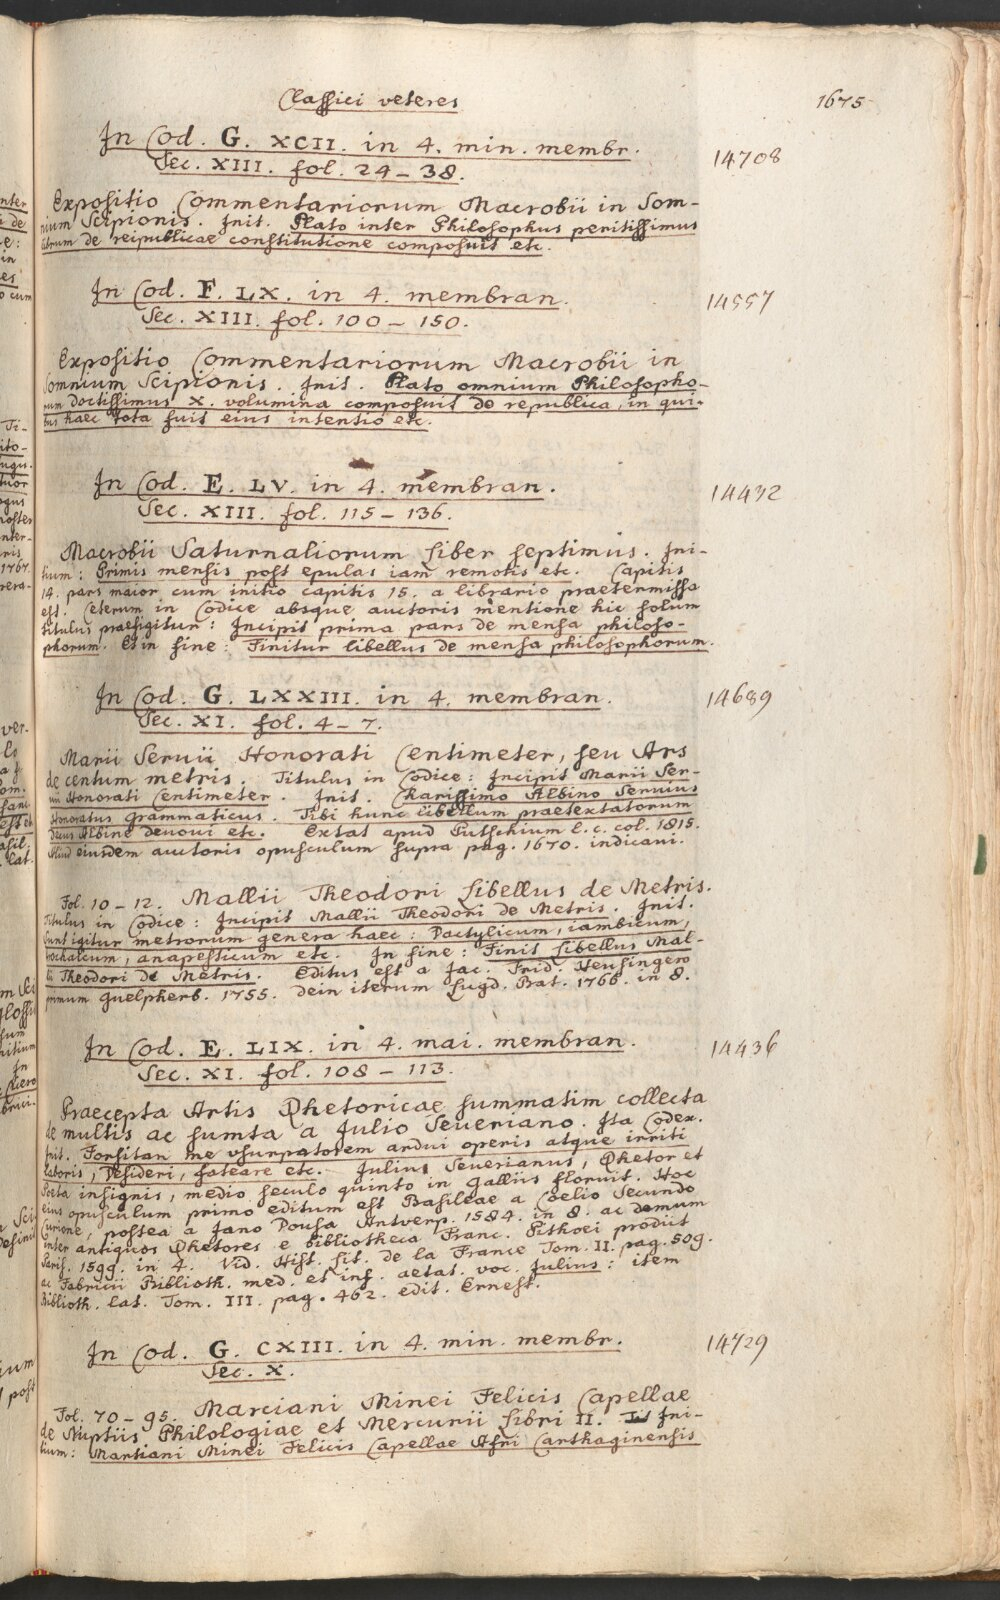 Classici veteres
1675
In Cod. G. XCII. in 4. min. membr.
14708
Sec. XIII. fol. 24-38.
Expositio Commentariorum Macrobii in Som-
nium Scipionis. Init. Plato inter Philosophus peritissimus
librum de reipublicae constitutione composuit etc.
In Cod. F. LX. in 4. membran.
14557
Sec. XIII. fol. 100-150.
Expositio Commentariorum Macrobii in
Somnium Scipionis. Init. Plato omnium Philosopho-
rum doctissimus X. volumina composuit de republica, in qui-
bus haec tota fuit eius intentio etc.
In Cod. E. LV. in 4. membran.
14432
Sec. XIII. fol. 115-136.
Macrobii Saturnaliorum Liber septimus. Ini-
tium: Primis mensis post epulas iam remotis etc. Capitis
14. pars maior cum initio capitis 15. a librario praetermissa
est. Ceterum in Codice absque auctoris mentione hic solum
titulus praefigitur: Incipit prima pars de mensa philoso-
phorum. et in fine: Finitur libellus de mensa philosophorum.
In Cod. G. LXXIII. in 4. membran.
14689
Sec. XI. fol. 4-7.
Marii Servii Honorati Centimeter, seu Ars
de centum metris. Titulus in Codice: Incipit Marii Ser-
vii Honorati Centimeter. Init. Charissimo Albino Servius
Honoratus Grammaticus. Tibi hunc libellum praetextatorum
decus Albine devoui etc. Extat apud Putschium l. c. col. 1815.
Aliud eiusdem auctoris opusculum supra pag. 1670. indicavi.
Fol. 10-12. Mallii Theodori Libellus de Metris.
Titulus in Codice: Incipit Mallii Theodori de Metris. Init.
Sunt igitur metrorum genera haec: Dactylicum, iambicum,
trochaicum, anapesticum etc. In fine: Finit Libellus Mal-
lii Theodori De Metris. Editus est a Jac. Frid. Heusingero
primum Guelpherb. 1755. dein iterum Lugd. Bat. 1766. in 8.
In Cod. E. LIX. in 4. mai. membran.
14436
Sec. XI. fol. 108-113.
Praecepta Artis Rhetoricae summatim collecta
de multis ac sumta a Julio Seueriano. Ita Codex.
Init. Forsitan me vsurpatorem ardui operis atque irriti
laboris, Desideri, fateare etc. Julius Seuerianus, Rhetor et
Poeta insignis, medio seculo quinto in Galliis floruit. Hoc
eius opusculum primo editum est Basileae a Coelio Secundo
Curione, postea a Jano Dousa Antverp. 1584. in 8. ac demum
inter antiquos Rhetores e bibliotheca Franc. Pithoei prodiit
Paris. 1599. in 4. Vid. Hist. Lit. de la France Tom. II. pag. 509.
ac Fabricii Biblioth. med. et inf. aetat. voc. Julius: item
Biblioth. Lat. Tom. III. pag. 462. edit. Ernest.
In Cod. G. CXIII. in 4. min. membr.
14729
Sec. X.
Fol. 70-95. Marciani Minei Felicis Capellae
de Nuptiis Philologiae et Mercurii Libri II. Ini-
tium: Martiani Minei Felicis Capellae Afri Carthaginensis